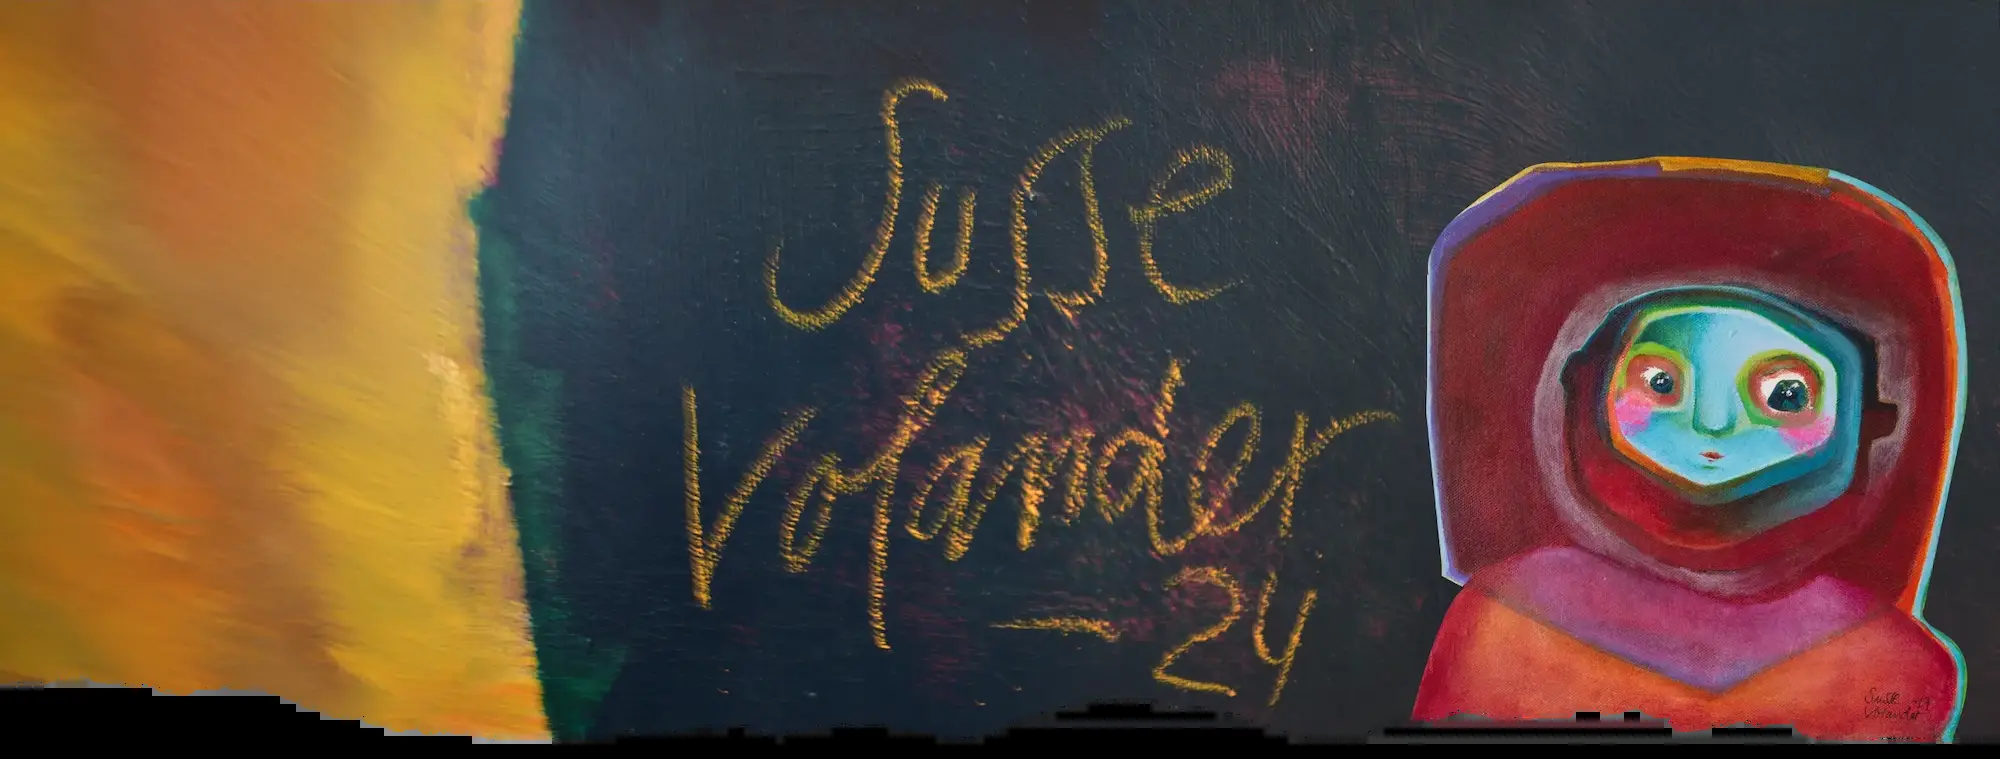 Susse
Volander
-24
Susse
Volander